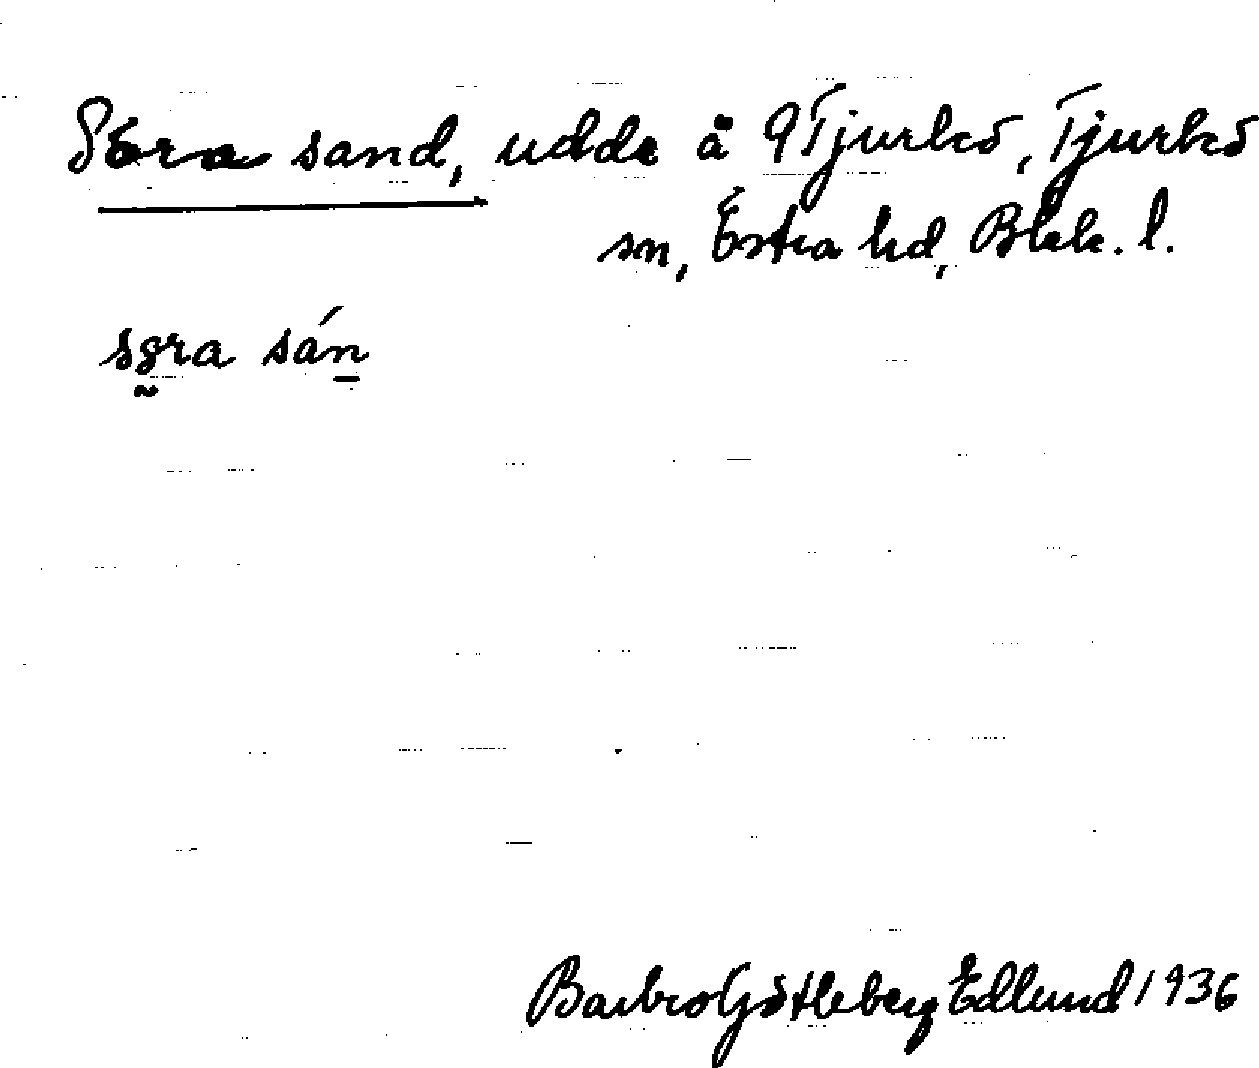 Söra sand, udde å Tjurkö, Tjurkö
sn, Östra hd, Blek. l.
sɡra sán
Barbro Götleberg Edlund 1936